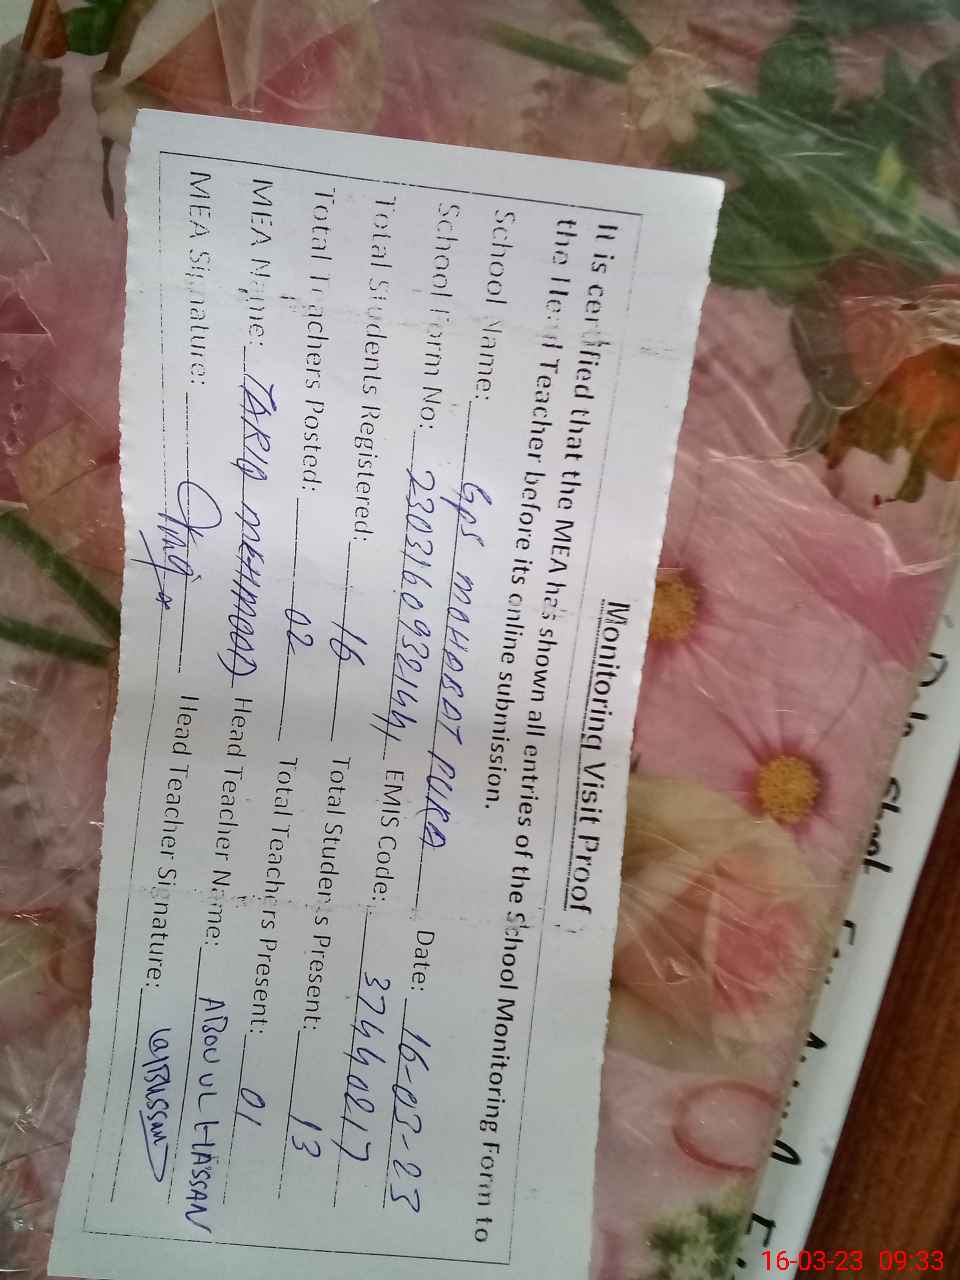 Monitoring Visit Proof
It is certified that the MEA has shown all entries of the School Monitoring Form to
the Head Teacher before its online submission.
School Name: GPS MOHOBAT PURA Date: 16-03-23
School Form No: 2303160932144 EMIS Code: 37440817
Total Students Registered: 16 Total Students Present: 13
Total Teachers Posted: 02 Total Teachers Present: 01
MEA Name: TARIQ MEHMOOD Head Teacher Name: ABDUL HASSAN
MEA Signature: Head Teacher Signature:
16-03-23 09:33